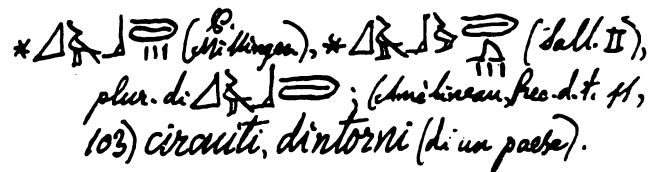 * (P. Millingen), * (Sall. II),
plur. di ; (Amélineau, Rec. d. t. 11,
103) circuiti, dintorni (di un paese).